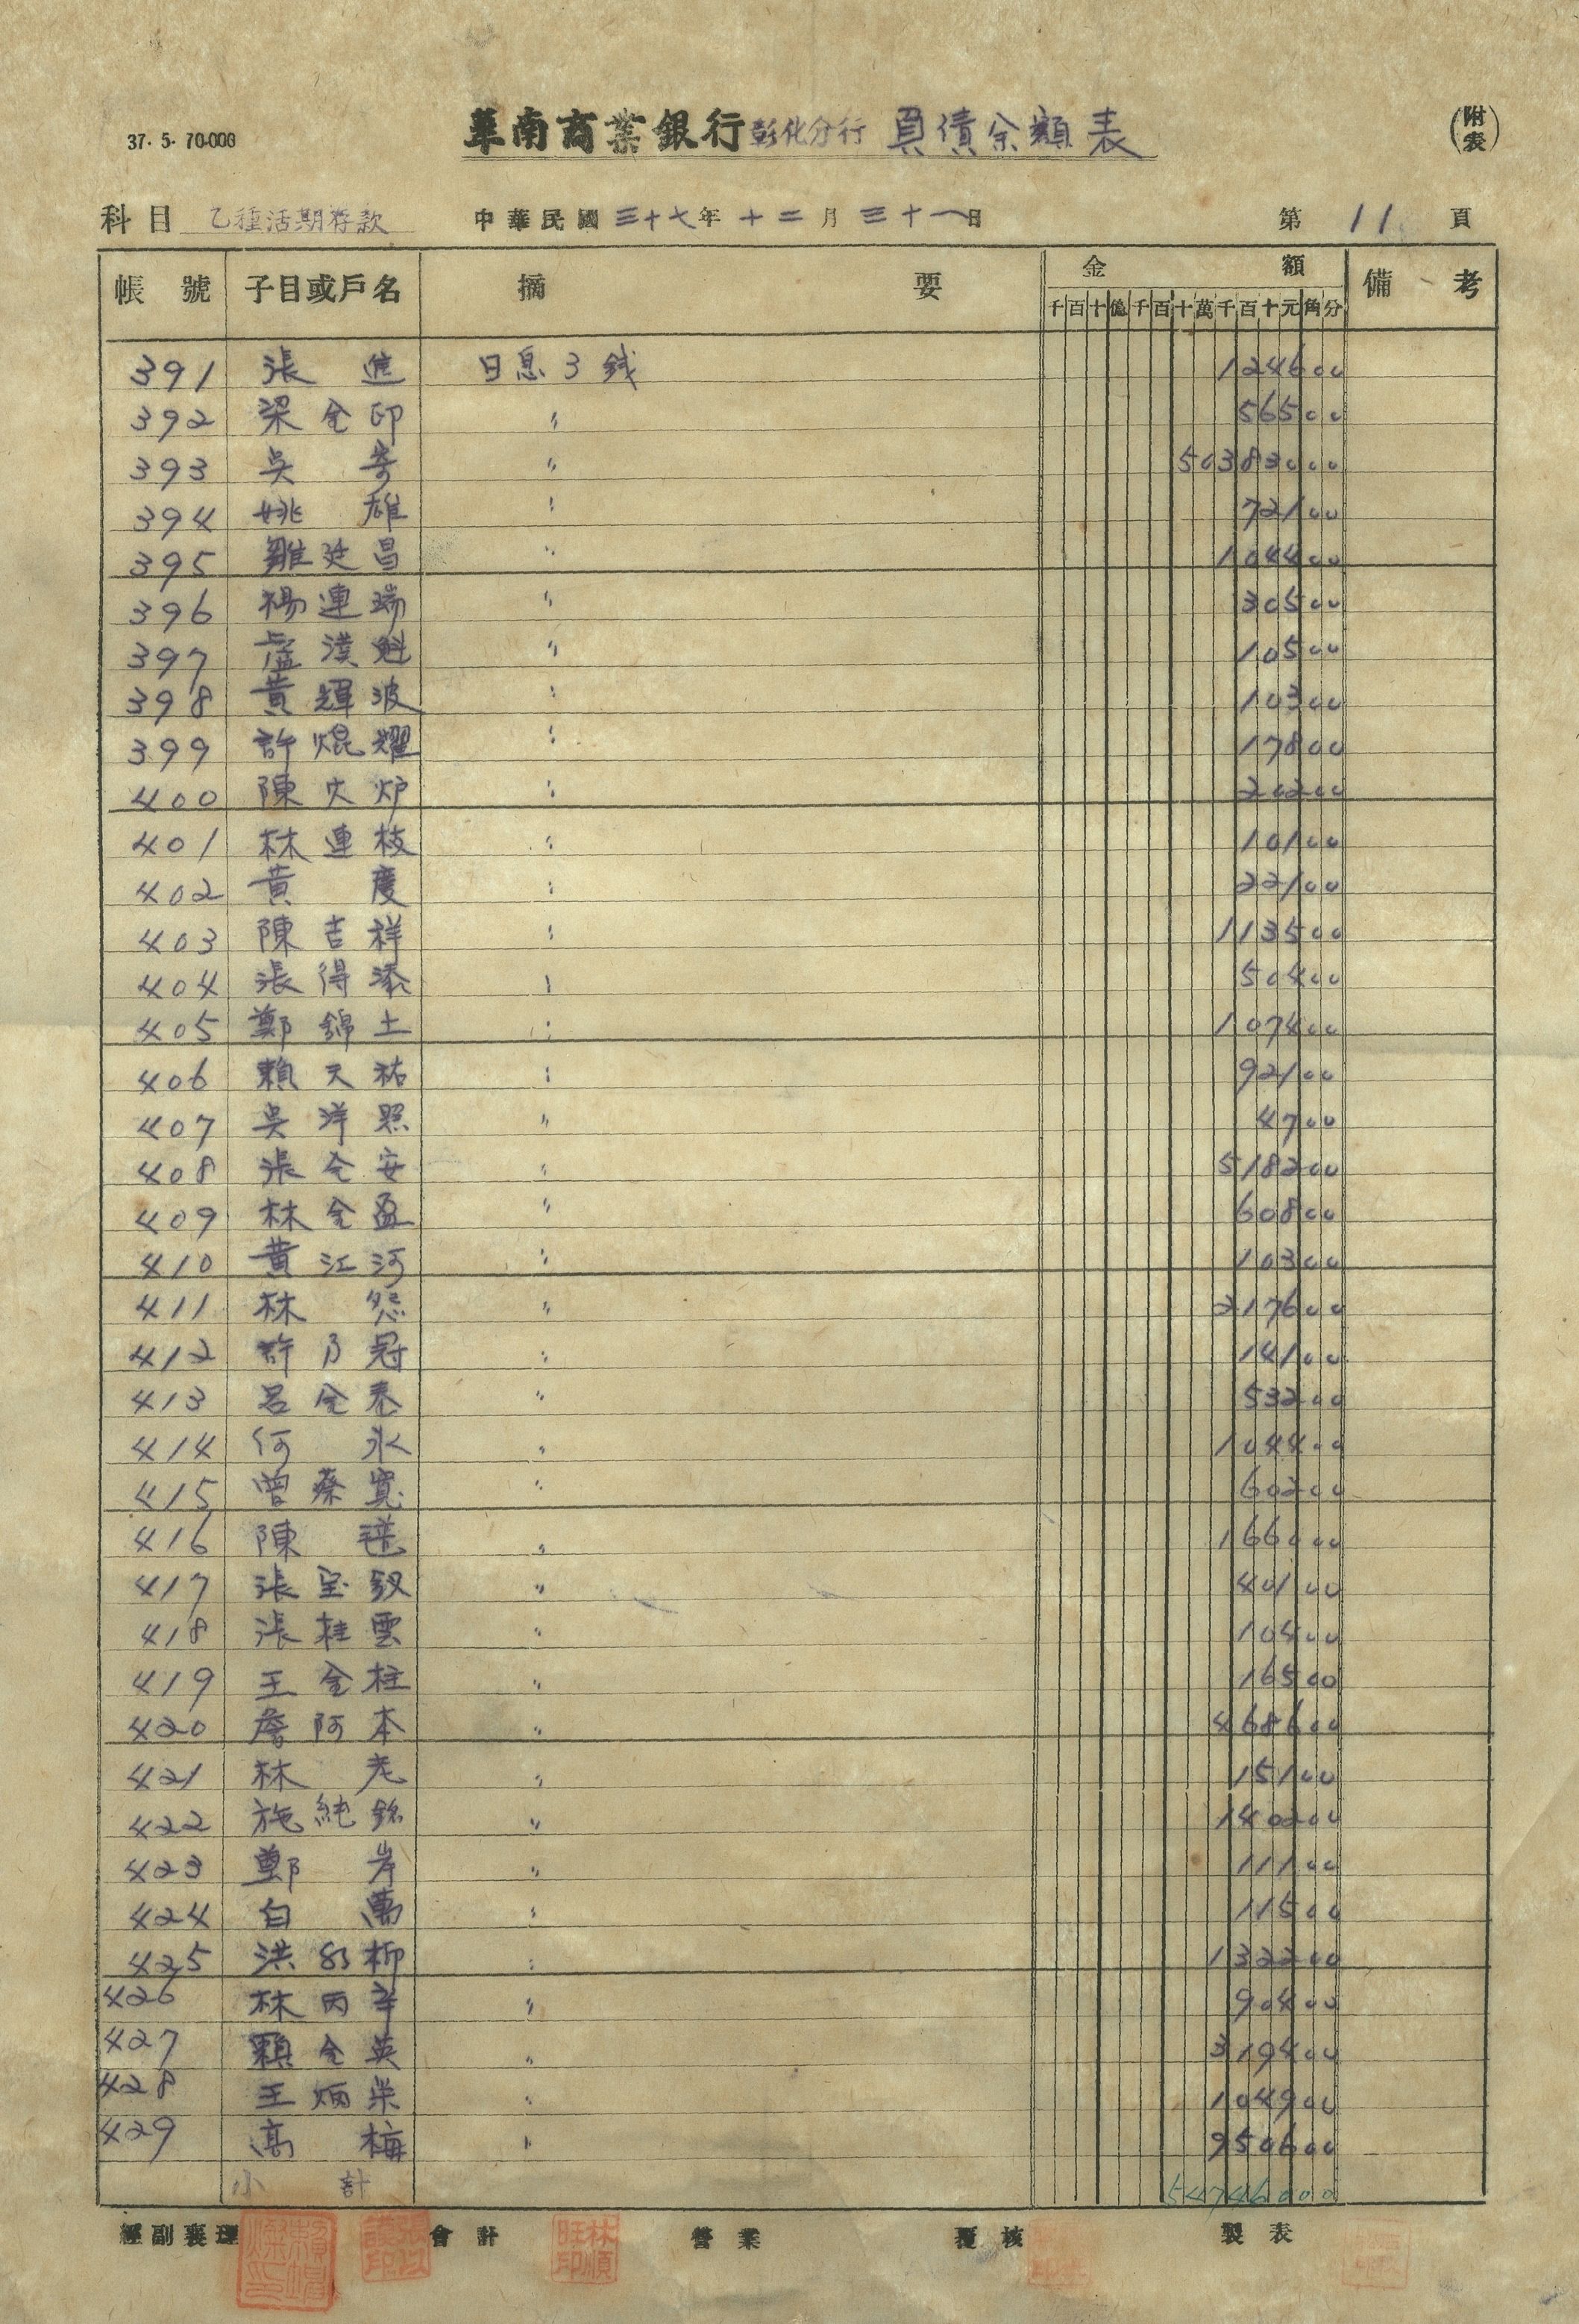 37. 5. 70.000
華南商業銀行彰化分行 負債余額表
(附表)
科目 乙種活期存款 中華民國三十七年十二月三十一日 第 11 頁
帳號 子目或戶名 摘要 金額 備考
千百十億千百十萬千百十元角分
391 張進 日息3錢 124600
392 梁全印 〃 56500
393 吳寄 〃 50383000
394 姚雄 〃 72100
395 雛廷昌 〃 104400
396 楊連瑞 〃 30500
397 盧漢魁 〃 10500
398 黃輝波 〃 10300
399 許焜耀 〃 17800
400 陳火炉 〃 20200
401 林連枝 〃 10100
402 黃慶 〃 22100
403 陳吉祥 〃 113500
404 張得添 〃 50400
405 鄭錦土 〃 107400
406 賴天祐 〃 92100
407 吳洋照 〃 4700
408 張全安 〃 518200
409 林全盈 〃 60800
410 黃江河 〃 10300
411 林 〃 217600
412 許乃冠 〃 14100
413 呂全泰 〃 53200
414 何永 〃 104400
415 曾蔡寬 〃 60200
416 陳 〃 166000
417 張宝釵 〃 40100
418 張桂雲 〃 10400
419 王金柱 〃 16500
420 詹阿本 〃 468600
421 林老 〃 15100
422 施純銘 〃 140200
423 鄭岸 〃 11100
424 白萬 〃 11500
425 洪 柳 〃 132200
426 林丙辛 〃 90400
427 顆全英 〃 319400
428 王炳栄 〃 104900
429 高梅 〃 950600
小計 54746000
經副襄理 會計 營業 覆核 製表
林順旺印